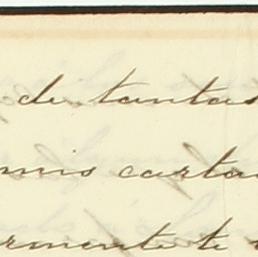 de tantas
mis carta
rmente te